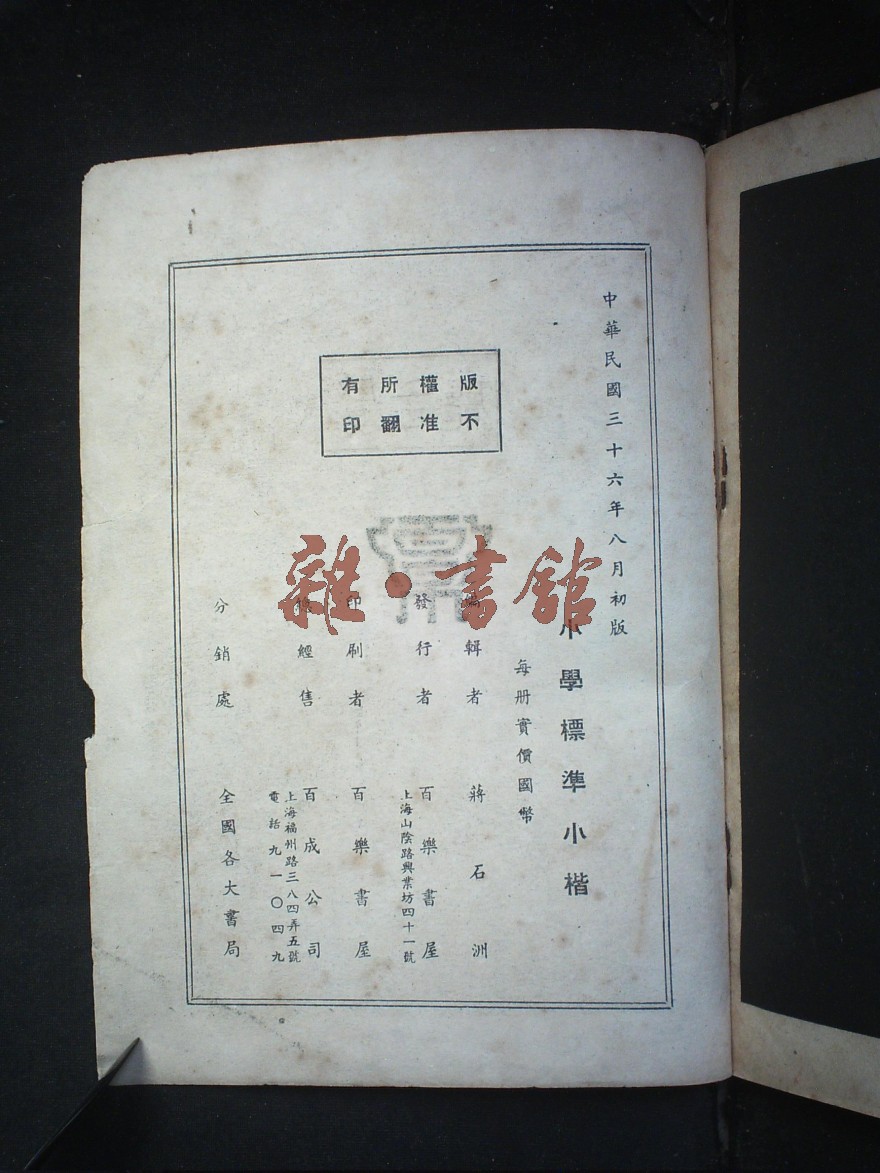 中華民國三十六年八月初版
小學標準小楷
每册實價國幣
編輯者 蔣石洲
發行者 百樂書屋
上海山陰路興業坊四十一號
印刷者 百樂書屋
總經售 百成公司
上海福州路三八四弄五號
電話九一〇四九
分銷處 全國各大書局
版權所有
不准翻印
雜·書館